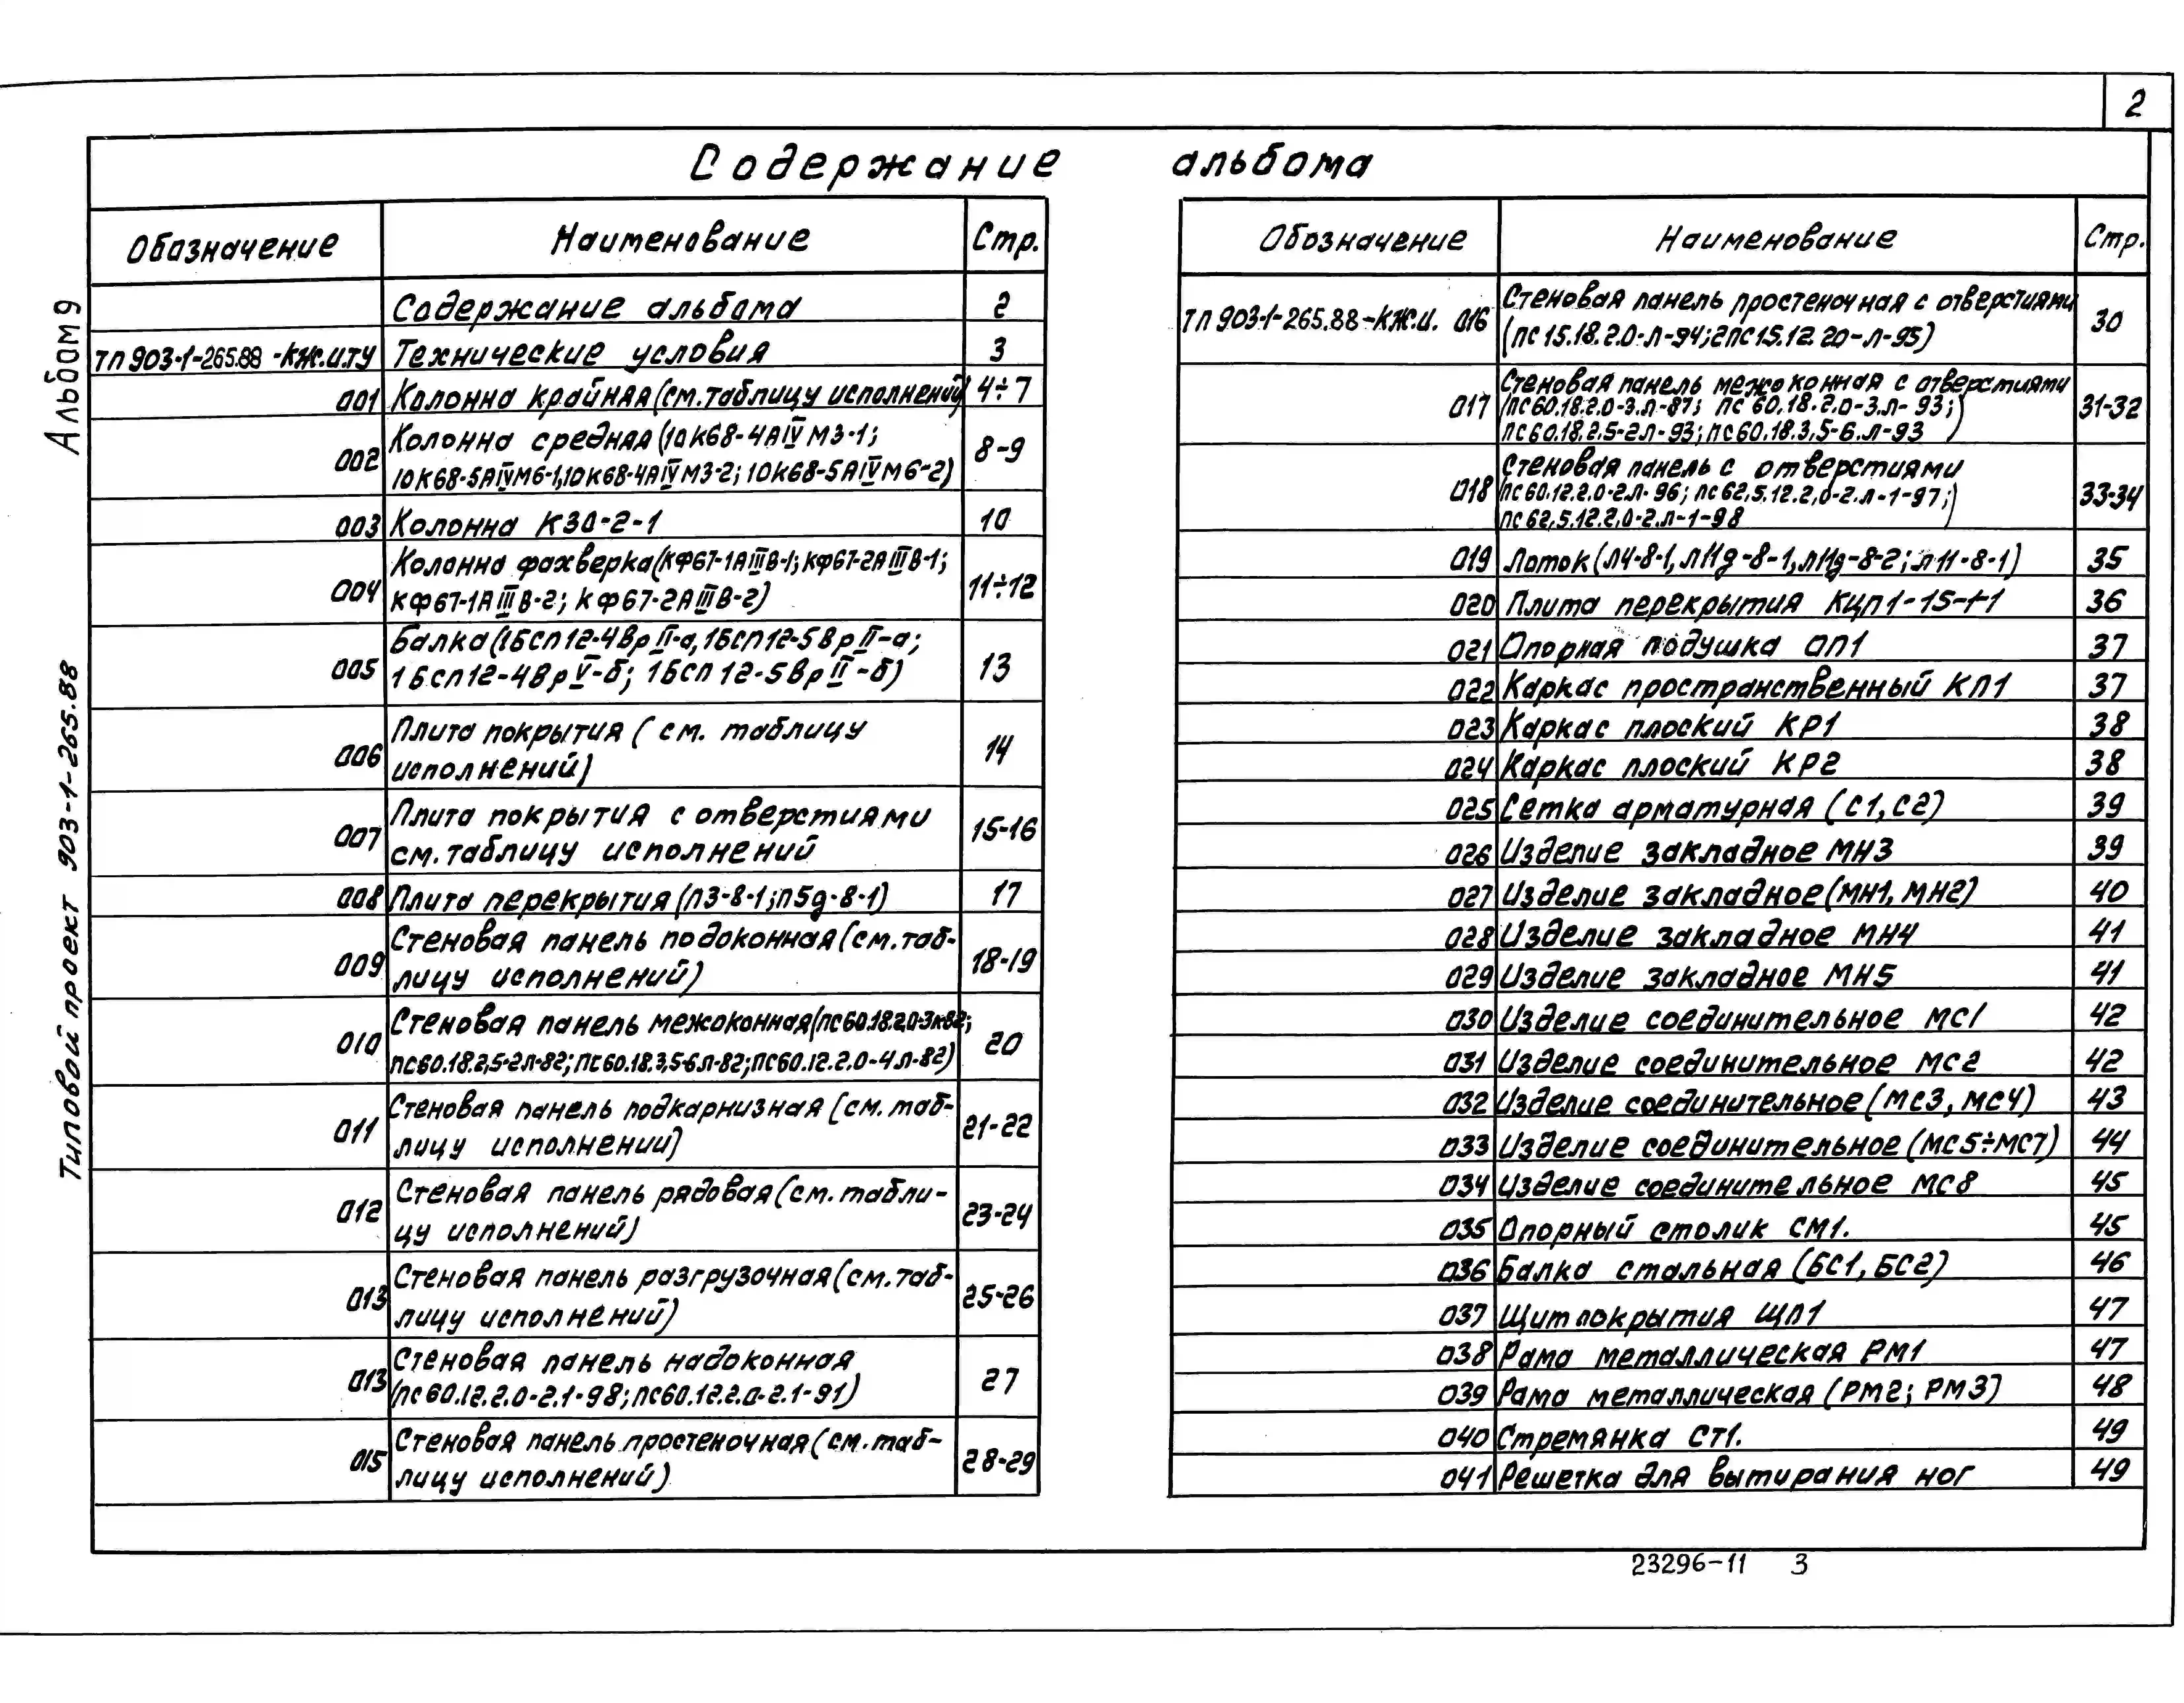 2
Содержание альбома
Альбом 9
Типовой проект 903-1-265.88
Обозначение Наименование Стр.
Содержание альбома 2
ТП 903-1-265.88-КЖ.И.ТУ Технические условия 3
001 Колонна крайняя (см. таблицу исполнений) 4÷7
002 Колонна средняя (10К68-4АIVМ3-1;
10К68-5АIVМ6-1, 10К68-4АIVМ3-2; 10К68-5АIVМ6-2) 8-9
003 Колонна К30-2-1 10
004 Колонна фахверка (КФ67-1АIIIВ-1; КФ67-2АIIIВ-1;
КФ67-1АIIIВ-2; КФ67-2АIIIВ-2) 11÷12
005 Балка (1БСП12-4ВрII-а, 1БСП12-5ВрII-а;
1БСП12-4ВрV-б; 1БСП12-5ВрII-б) 13
006 Плита покрытия (см. таблицу
исполнений) 14
007 Плита покрытия с отверстиями
см. таблицу исполнений 15-16
008 Плита перекрытия (П3-8-1; П5д-8-1) 17
009 Стеновая панель подоконная (см. таб-
лицу исполнений) 18-19
010 Стеновая панель межоконная (ПС60.18.2,0-3к82;
ПС60.18.2,5-2л-82; ПС60.18.3,5-6л-82; ПС60.12.2.0-4л-82) 20
011 Стеновая панель подкарнизная (см. таб-
лицу исполнении) 21-22
012 Стеновая панель рядовая (см. табли-
цу исполнений) 23-24
013 Стеновая панель разгрузочная (см. таб-
лицу исполнений) 25-26
013 Стеновая панель надоконная
(ПС60.12.2.0-2.1-98; ПС60.12.2.0-2.1-91) 27
015 Стеновая панель простеночная (см. таб-
лицу исполнений) 28-29
Обозначение Наименование Стр.
ТП 903-1-265.88-КЖ.И. 016 Стеновая панель простеночная с отверстиями
(ПС15.18.2.0-Л-94; 2ПС15.12.20-Л-95) 30
017 Стеновая панель межоконная с отверстиями
(ПС60.18.2.0-3.Л-87; ПС60.18.2.0-3.Л-93;)
ПС60.18.2.5-2Л-93; ПС60.18.3,5-6.Л-93 31-32
018 Стеновая панель с отверстиями
ПС60.12.2.0-2Л-96; ПС62,5.12.2,0-2.Л-1-97;)
ПС62,5.12.2,0-2.Л-1-98 33-34
019 Лоток (Л4-8-1, Л11д-8-1, Л11д-8-2; Л11-8-1) 35
020 Плита перекрытия КЦП1-15-1-1 36
021 Опорная подушка ОП1 37
022 Каркас пространственный КП1 37
023 Каркас плоский КР1 38
024 Каркас плоский КР2 38
025 Сетка арматурная (С1, С2) 39
026 Изделие закладное МН3 39
027 Изделие закладное (МН1, МН2) 40
028 Изделие закладное МН4 41
029 Изделие закладное МН5 41
030 Изделие соединительное МС1 42
031 Изделие соединительное МС2 42
032 Изделие соединительное (МС3, МС4) 43
033 Изделие соединительное (МС5÷МС7) 44
034 Изделие соединительное МС8 45
035 Опорный столик СМ1. 45
036 Балка стальная (БС1, БС2) 46
037 Щит покрытия ЩП1 47
038 Рама металлическая РМ1 47
039 Рама металлическая (РМ2; РМ3) 48
040 Стремянка СТ1. 49
041 Решетка для вытирания ног 49
23296-11 3